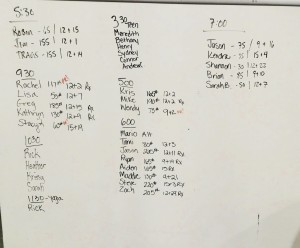 5:30
Kevin - 65 / 12+15
Jim - 155 / 12+1
TRAVIS - 155 / 12+14
930
Rachel 12+2 Rx
Lisa 55# 12+7
Greg 185# 12+5 Rx
Kathryn 130# 12+9 Rx
Stacy 15+19
1030
Rick
Heather
Krissy
Sarah
1130-yoga
Rick
3:30 Teen
Meredith
Bethany
Henry
Sydney
Connor
Andrew
500
Kris 12+2
Mike 12+2 Rx
Wendy 75# 9+2
600
Mario
Toni 12+3
Jason 205# 12+11 Rx
Ryan 165# 9+14 Rx
Aiden 165# 15 Rx
Maddie 130# 9+21
Steve 220# 15+3 Rx
Zach 205# 12+29 Rx
7:00
Jason - 75 / 9+16
Kendra - 35 / 15+4
Shannon - 30 / 12+22
Brian - 95 / 9+0
Sarah B - 50 / 12+7